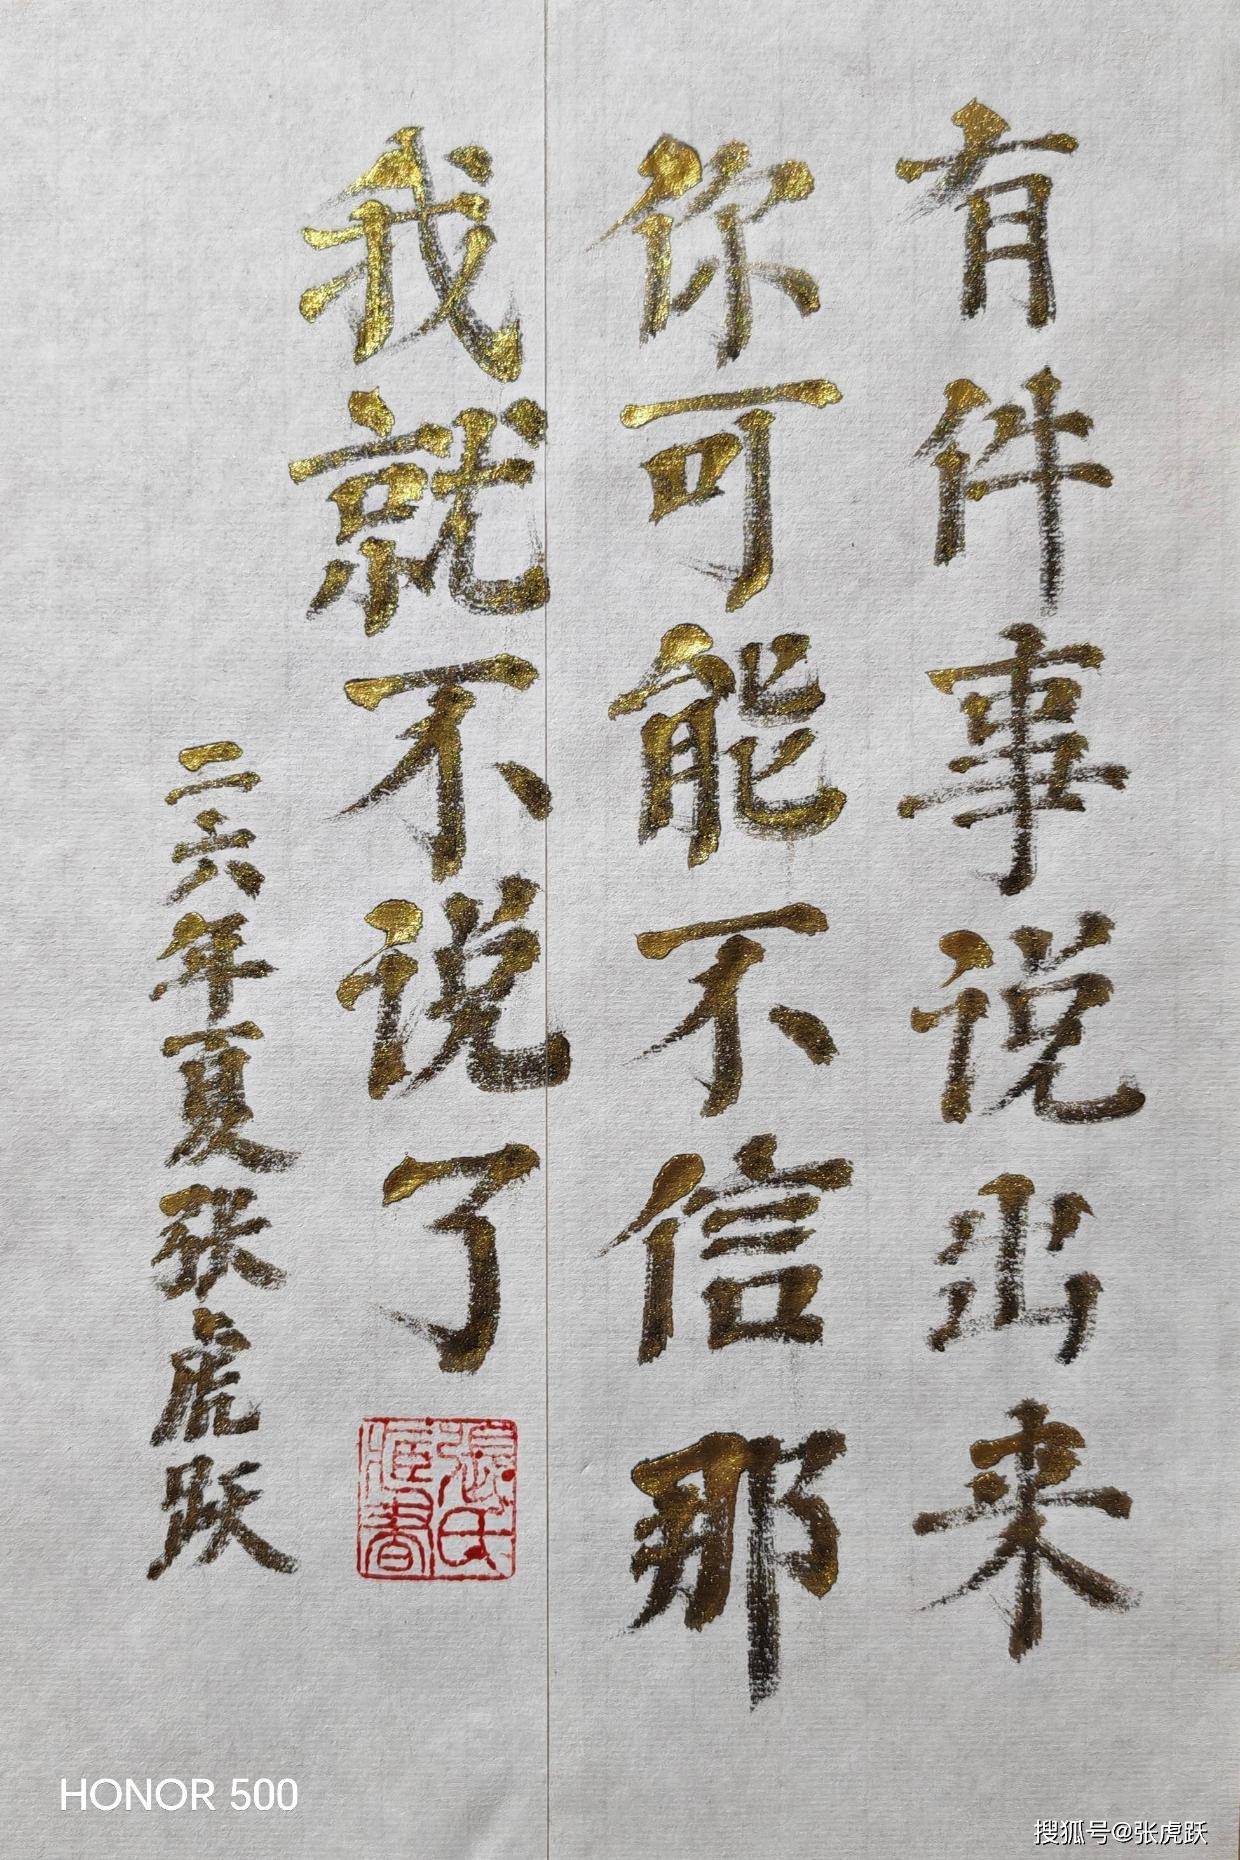 有件事说出来
你可能不信那
我就不说了
二六年夏张虎跃
張氏
HONOR 500
搜狐号@张虎跃